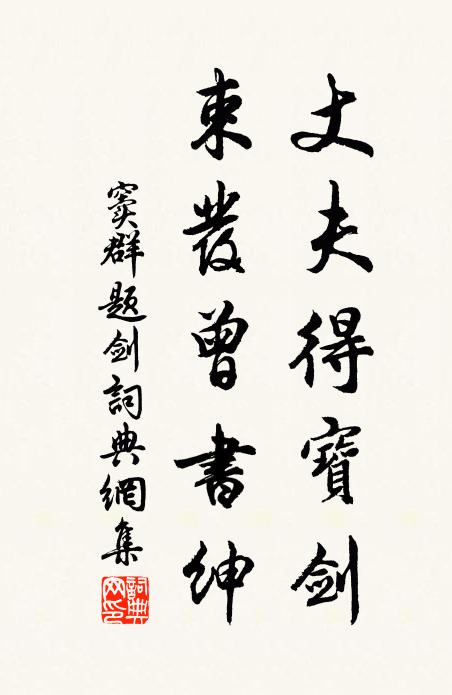 丈夫得寶剑
束髮曾書紳
竇群題剑詞典網集
詞典網印